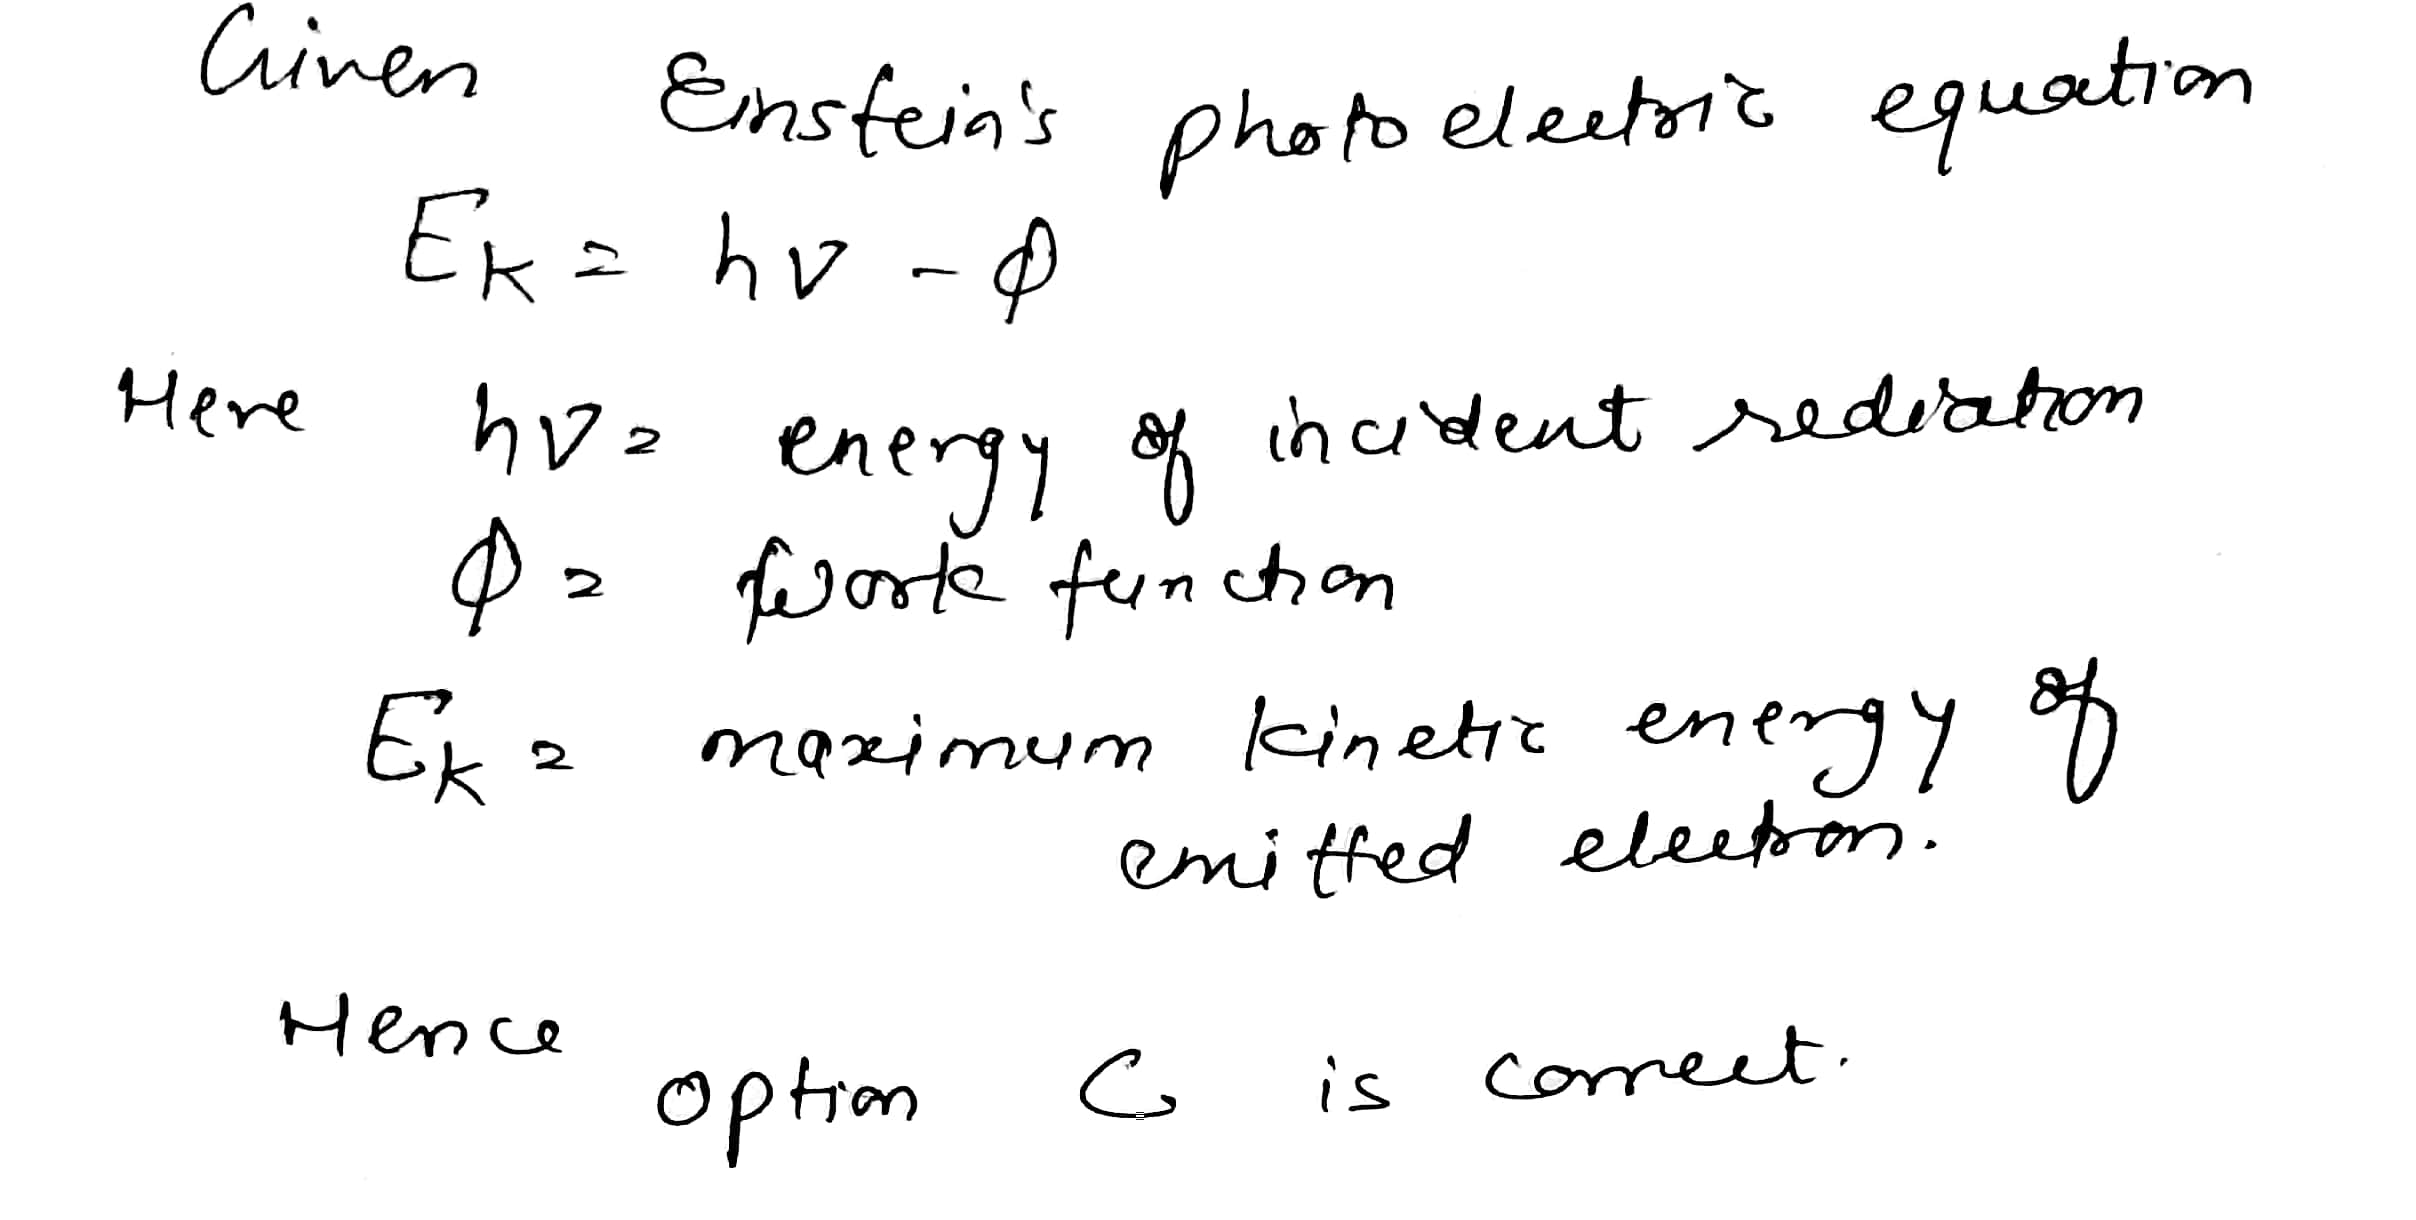 Given Einstein's photo electric equation
EK = hν - φ
Here hν = energy of incident radiation
φ = work function
EK = maximum kinetic energy of
emitted electron.
Hence
option C is correct.